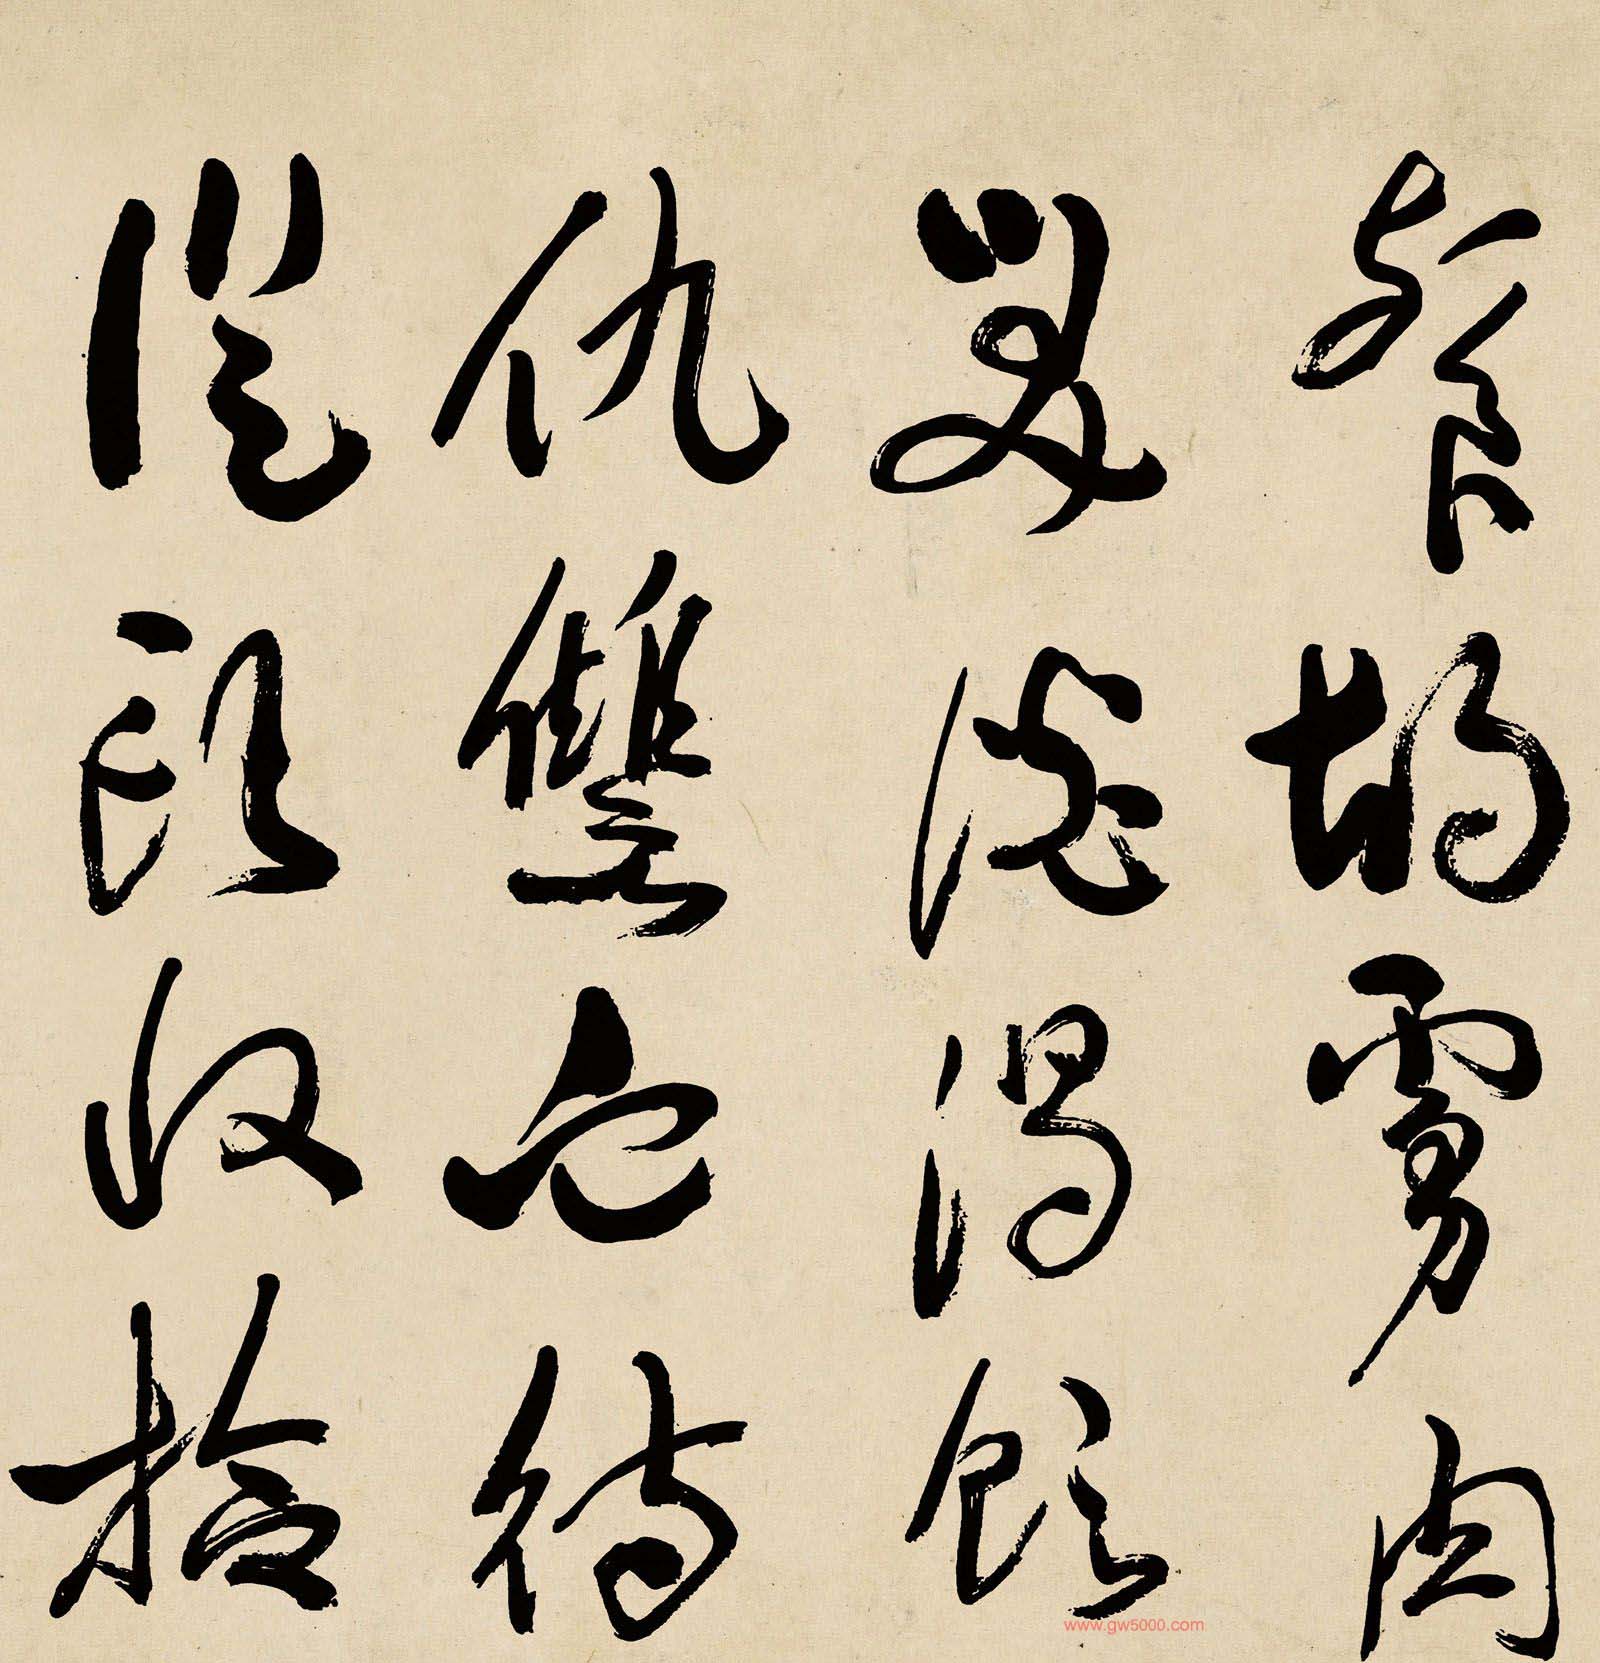 餐胡虜肉
笑談渴飲
仇讎血待
從頭收拾
www.gw5000.com